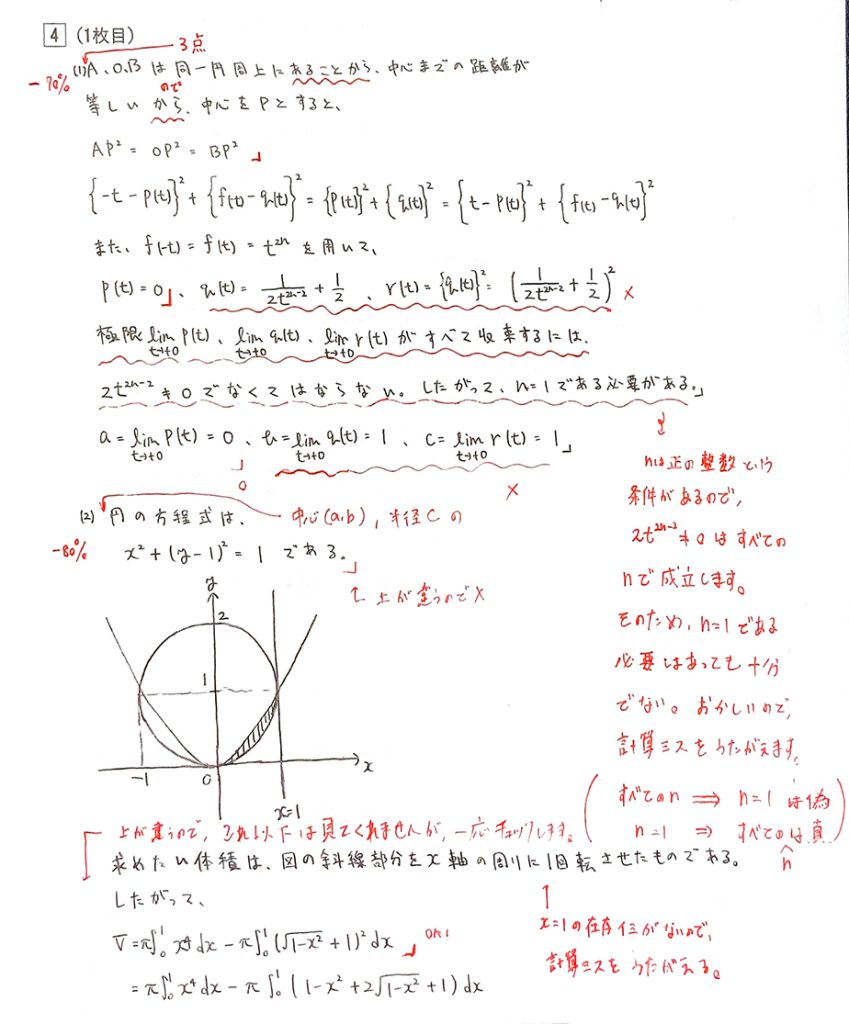 4 (1枚目)
3点
-70%
(1) A、O、Bは同一円周上にあることから、中心までの距離が
ので
等しいから、中心をPとすると、
AP² = OP² = BP²
{-t - p(t)}² + {f(t) - q(t)}² = {p(t)}² + {q(t)}² = {t - p(t)}² + {f(t) - q(t)}²
また、f(-t) = f(t) = t²ⁿ を用いて、
p(t) = 0、q(t) = 1/(2t²ⁿ⁻²) + 1/2、r(t) = {q(t)}² = (1/(2t²ⁿ⁻²) + 1/2)² ×
極限 lim t→+0 p(t)、lim t→+0 q(t)、lim t→+0 r(t) がすべて収束するには、
2t²ⁿ⁻² ≠ 0 でなくてはならない。したがって、n=1である必要がある。
a = lim t→+0 p(t) = 0、b = lim t→+0 q(t) = 1、c = lim t→+0 r(t) = 1
○
×
nは正の整数という
条件があるので、
2t²ⁿ⁻² ≠ 0 はすべての
nで成立します。
そのため、n=1である
必要はあっても十分
でない。おかしいので、
計算ミスをうたがえます。
(すべてのn ⟹ n=1 は偽
n=1 ⟹ すべてのnは真)
(2) 円の方程式は、
中心(a,b), 半径Cの
-80%
x² + (y-1)² = 1 である。
↑上が違うので×
y
2
1
-1
0
x
x=1
上が違うので、これ以下は見てくれませんが、一応チェックします。
求めたい体積は、図の斜線部分をx軸の周りに1回転させたものである。
したがって、
↑
x=1の存在イミがないので、
計算ミスをうたがえる。
V = π∫₀¹ x⁴ dx - π∫₀¹ (√(1-x²) + 1)² dx
OK!
= π∫₀¹ x⁴ dx - π∫₀¹ (1 - x² + 2√(1-x²) + 1) dx